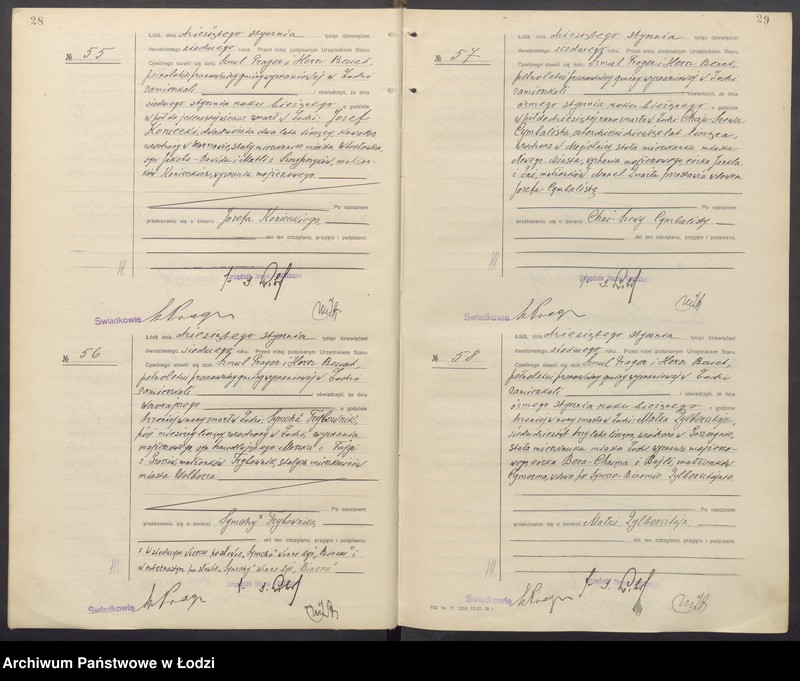 28
№ 55
Łódź, dnia dziesiątego stycznia tysiąc dziewięćset
dwudziestego siódmego roku. Przed niżej podpisanym Urzędnikiem Stanu
Cywilnego stawili się: Szmul Prager i Hersz Beucht,
pełnoletni pracownicy gminy wyznaniowej w Łodzi
zamieszkali i oświadczyli, że dnia
siódmego stycznia roku bieżącego o godzinie
wpół do jedenastej wiecz zmarł w Łodzi: Józef
Koniecki, dwadzieścia dwa lata liczący, kawaler
urodzony w Warszawie, stały mieszkaniec miasta Włocławka,
syn Jakóba-Dawida i Matli z małżon-
ków Konieckich, wyznania mojżeszowego.
Po naocznem
przekonaniu się o śmierci Józefa Konieckiego,
akt ten odczytano, przyjęto i podpisano.
Urzędnik Stanu
Świadkowie
№ 56
Łódź, dnia dziesiątego stycznia tysiąc dziewięćset
dwudziestego siódmego roku. Przed niżej podpisanym Urzędnikiem Stanu
Cywilnego stawili się: Szmul Prager i Hersz Beucht,
pełnoletni pracownicy gminy wyznaniowej w Łodzi
zamieszkali i oświadczyli, że dnia
wczorajszego o godzinie
trzeciej w nocy zmarł w Łodzi: Symcha Grybownik,
pięć miesięcy liczący, urodzony w Łodzi, wyznania
mojżeszowego, syn handlującego Moszka i
z małżonków Grybownik, stałych mieszkańców
miasta Wolborza
Po naocznem
przekonaniu się o śmierci Symchy Grybownika,
akt ten odczytano, przyjęto i podpisano.
w siódmym wierszu po słowie „Symcha" winno być „Binem" i
po słowie „Symchy" winno być „Binema"
Urzędnik Stanu
Świadkowie
29
№ 57
Łódź, dnia dziesiątego stycznia tysiąc dziewięćset
dwudziestego siódmego roku. Przed niżej podpisanym Urzędnikiem Stanu
Cywilnego stawili się: Szmul Prager i Hersz Beucht,
pełnoletni pracownicy gminy wyznaniowej w Łodzi
zamieszkali i oświadczyli, że dnia
ósmego stycznia roku bieżącego o godzinie
wpół do dziesiątej rano zmarła w Łodzi: Chaja-Sewa
Cymbalista, czterdzieści dziewięć lat licząca,
urodzona w Mogielnicy, stała mieszkanka miasta
Nowego Miasta, wyznania mojżeszowego, córka
małżonków Manel. Zmarła pozostawiła wdowcem
Józefa Cymbalistę
Po naocznem
przekonaniu się o śmierci Chai-Sewy Cymbalisty
akt ten odczytano, przyjęto i podpisano.
Urzędnik Stanu
Świadkowie
№ 58
Łódź, dnia dziesiątego stycznia tysiąc dziewięćset
dwudziestego siódmego roku. Przed niżej podpisanym Urzędnikiem Stanu
Cywilnego stawili się: Szmul Prager i Hersz Beucht,
pełnoletni pracownicy gminy wyznaniowej w Łodzi
zamieszkali i oświadczyli, że dnia
ósmego stycznia roku bieżącego o godzinie
trzeciej w nocy zmarła w Łodzi: Małka Zylbersztajn,
siedemdziesiąt trzy lata licząca, urodzona w
stała mieszkanka miasta Łodzi wyznania mojżeszo-
wego, córka Bera-Chaima i Bajli, małżonków
wdowa po Symsze-Binemie Zylbersztajnie
Po naocznem
przekonaniu się o śmierci Małki Zylbersztajn,
akt ten odczytano, przyjęto i podpisano.
Urzędnik Stanu
Świadkowie
Archiwum Państwowe w Łodzi